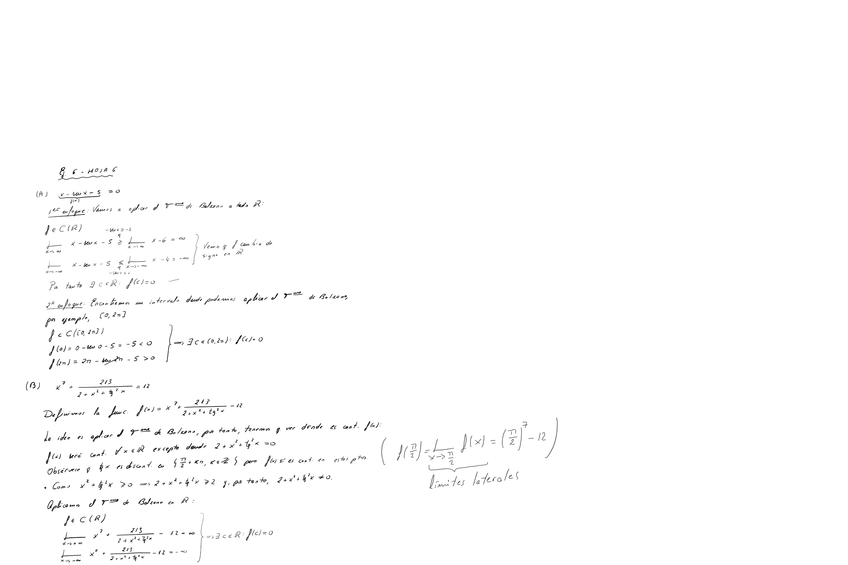 Ej 6 - HOJA 6
(A) x - sen x - 5 = 0
f(x)
1er enfoque: Vamos a aplicar el Tma de Bolzano a todo ℝ:
f ∈ C(ℝ)
lim x→∞ x - sen x - 5 ≥ lim x→∞ x - 6 = ∞
lim x→-∞ x - sen x - 5 ≤ lim x→-∞ x - 4 = -∞
Vemos q f cambia de signo en ℝ
Por tanto ∃ c ∈ ℝ: f(c) = 0
2º enfoque: Encontremos un intervalo donde podemos aplicar el Tma de Bolzano,
por ejemplo, [0, 2π]
f ∈ C([0, 2π])
f(0) = 0 - sen 0 - 5 = -5 < 0
f(2π) = 2π - sen 2π - 5 > 0
→ ∃ c ∈ (0, 2π): f(c) = 0
(B) x⁷ + 213 / (2 + x² + tg²x) = 12
Definimos la func. f(x) = x⁷ + 213 / (2 + x² + tg²x) - 12
La idea es aplicar el Tma de Bolzano, por tanto, tenemos q ver donde es cont. f(x):
f(x) será cont. ∀x ∈ ℝ excepto donde 2 + x² + tg²x = 0
Obsérvese q tg x es discont. en {π/2 + kπ, k ∈ ℤ} pero f(x) sí es cont. en estos ptos.
( f(π/2) = lim x→π/2 f(x) = (π/2)⁷ - 12 )
límites laterales
• Como x² + tg²x ≥ 0 → 2 + x² + tg²x ≥ 2 y, por tanto, 2 + x² + tg²x ≠ 0.
Aplicamos el Tma de Bolzano en ℝ:
f ∈ C(ℝ)
lim x→∞ x⁷ + 213 / (2 + x² + tg²x) - 12 = ∞
lim x→-∞ x⁷ + 213 / (2 + x² + tg²x) - 12 = -∞
→ ∃ c ∈ ℝ: f(c) = 0